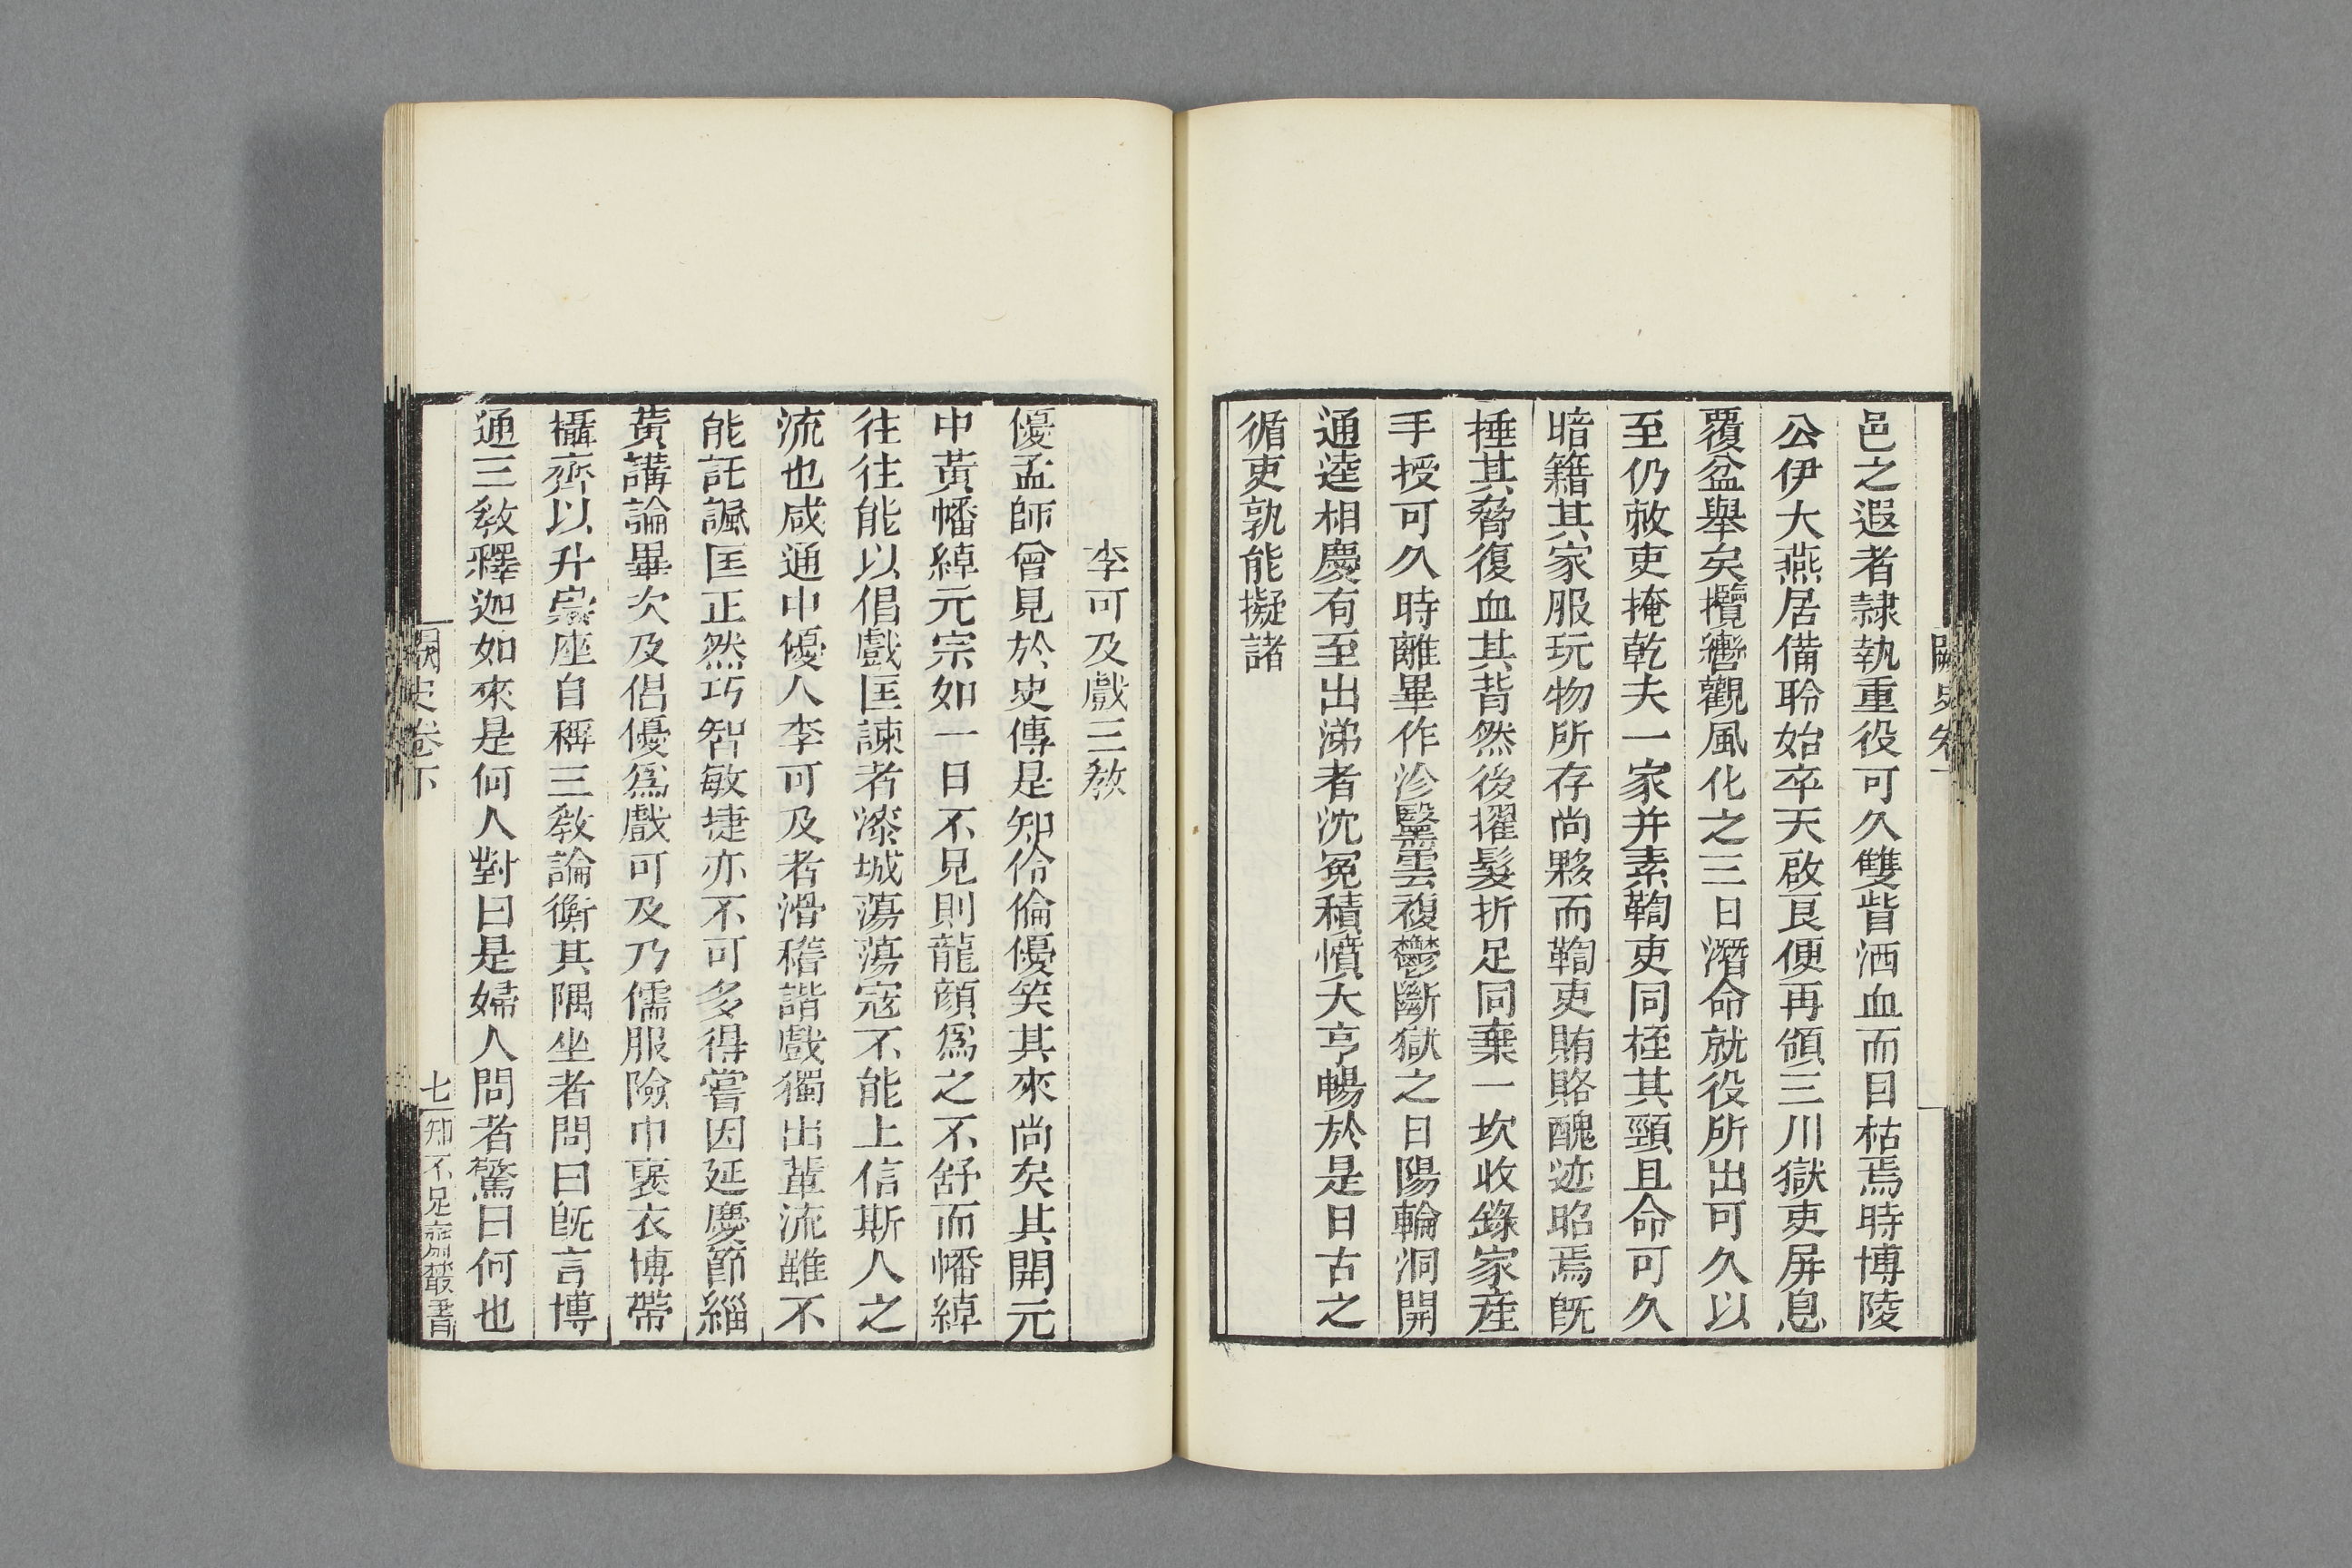 闕史卷
邑之遐者隷執重役可久雙眥洒血而目枯焉時博陵
公伊大燕居備聆始卒天啟良便再領三川獄吏屏息
覆盆舉矣攬轡觀風化之三日潛命就役所出可久以
至仍敕吏掩乾夫一家并素鞫吏同桎其頸且命可久
暗籍其家服玩物所存尚夥而鞫吏賄賂醜迹昭焉旣
捶其脅復血其背然後擢髮折足同棄一坎收錄家産
手授可久時離畢作沴翳雲複鬱斷獄之日陽輪洞開
通逵相慶有至出涕者沈冤積憤大亨暢於是日古之
循吏孰能擬諸
李可及戲三教
優孟師曾見於史傳是知伶倫優笑其來尚矣其開元
中黃幡綽元宗如一日不見則龍顏爲之不舒而幡綽
往往能以倡戲匡諫者漆城蕩蕩寇不能上信斯人之
流也咸通中優人李可及者滑稽諧戲獨出輩流雖不
能託諷匡正然巧智敏捷亦不可多得嘗因延慶節緇
黃講論畢次及倡優爲戲可及乃儒服險巾襃衣博帶
攝齊以升崇座自稱三教論衡其隅坐者問曰旣言博
通三教釋迦如來是何人對曰是婦人問者驚曰何也
闕史卷下
七
知不足齋叢書